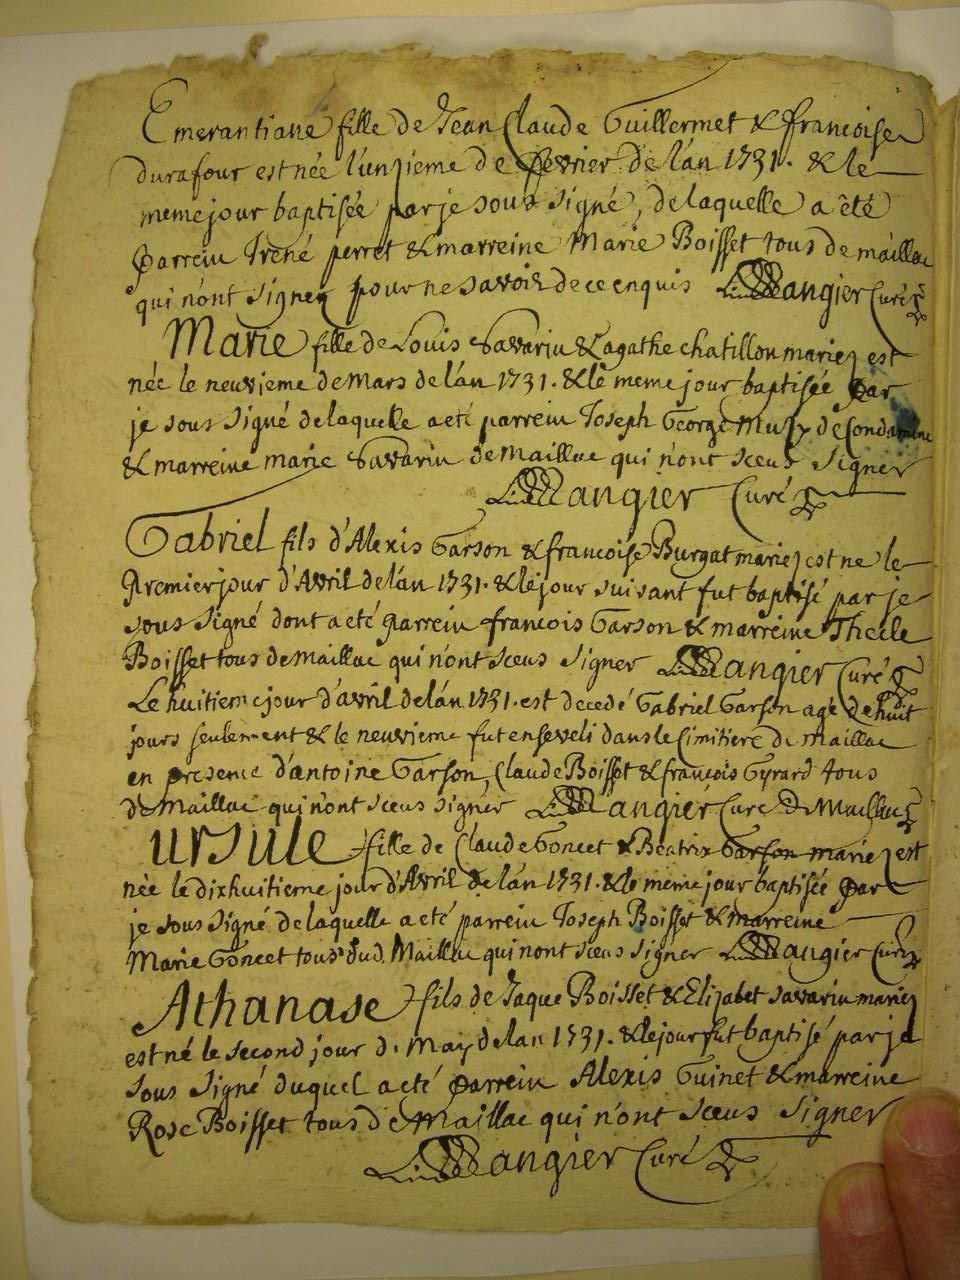 Emerantiane fille de Jean Claude Guillermet & francoise
durafour est née l'unzieme de fevrier de l'an 1731. & le
meme jour baptisée par je sous signé, de laquelle a èté
parrein Irené perret & marreine Marie Boisset tous de maillac
qui n'ont signez pour ne savoir de ce enquis Mangier Curé
Marie fille de Louis Savarin & agathe chatillon mariez est
née le neuvieme de Mars de l'án 1731. & le meme jour baptisée par
je sous signé de laquelle a eté parrein Joseph George de Condamine
& marreine marie Savarin de Maillac qui n'ont sceus signer
Mangier Curé
Gabriel fils d'Alexis Garson & francoise Burgat mariez est ne le
Premier jour d'Avril de l'án 1731. & le jour suivant fut baptisé par je
sous signé dont a eté parrein francois Garson & marreine Thecle
Boisset tous de Maillac qui n'ont sceus signer Mangier Curé
Le huitieme jour d'avril de l'án 1731. est decedé Gabriel Garson agé de huit
jours seulement & le neuvieme fut enseveli dans le Cimitiere de Maillac
en presence d'antoine Garson, Claude Boisset & francois Gyrard tous
de Maillac qui n'ont sceus signer Mangier Curé de Maillac
Ursule fille de Claude Goncet & Beatrix Garson mariez est
née le dixhuitieme jour d'Avril de l'án 1731. & le meme jour baptisée par
je sous signé de laquelle a eté parrein Joseph Boisset & marreine
Marie Goncet tous dud. Maillac qui n'ont sceus signer Mangier Curé
Athanase fils de Jaque Boisset & Elizabet savarin mariez
est né le second jour de May de l'an 1731. & le jour fut baptisé par je
sous signé duquel a eté parrein Alexis Guinet & marreine
Rose Boisset tous de Maillac qui n'ont sceus signer
Mangier Curé